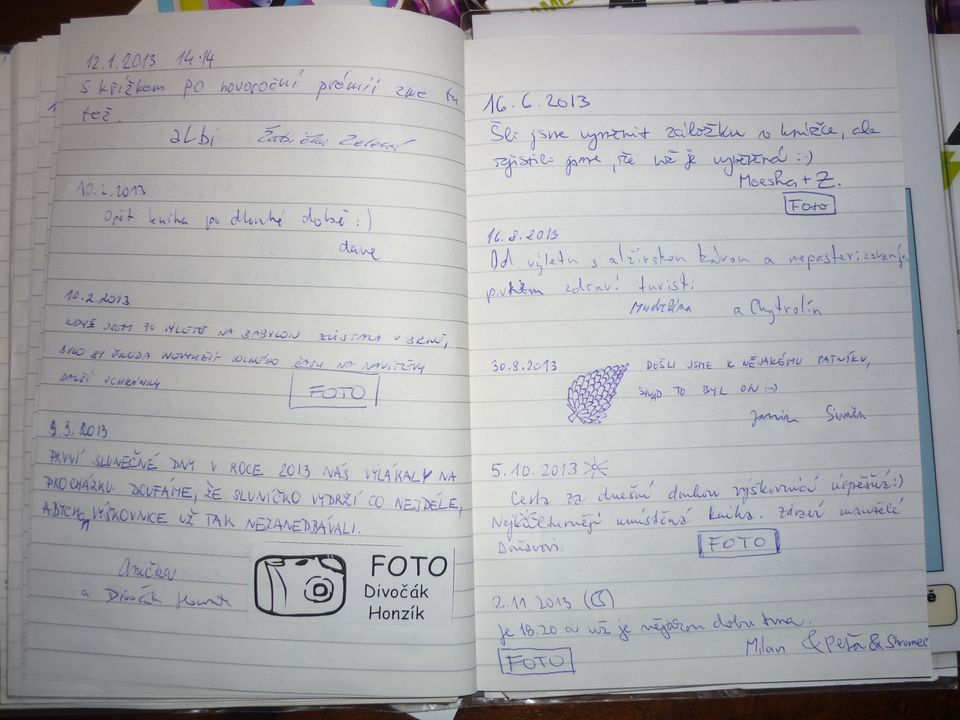 12.1.2013 14:14
S křížkem po novoroční prémii zme tu
též.
albi
10.2.2013
Opět kniha po dlouhé době :)
dave
10.2.2013
KDYŽ JSEM PO VÝLETĚ NA BABYLON ZŮSTALA V BRNĚ,
BYLO BY ŠKODA NEVYUŽÍT VOLNÉHO ČASU NA NÁVŠTĚVU
DALŠÍ SCHRÁNKY
FOTO
9.3.2013
PRVNÍ SLUNEČNÉ DNY V ROCE 2013 NÁS VYLÁKALY NA
PROCHÁZKU. DOUFÁME, ŽE SLUNÍČKO VYDRŽÍ CO NEJDÉLE,
ABYCHOM VÝŠKOVNICE UŽ TAK NEZANEDBÁVALI.
Anička
a Divočák Honzík
FOTO
Divočák
Honzík
16.6.2013
Šli jsme vyměnit záložku v knížce, ale
zjistili jsme, že už je vyměněná :-)
+ Z.
FOTO
16.8.2013
Od výletu s alžírskou kávou a
zdraví turisti
a Chytrolín
30.8.2013
DOŠLI JSME K NĚJAKÉMU PATNÍKU,
SNAD TO BYL ON :-)
5.10.2013
Cesta za dnešní druhou výškovnicí úspěšná :)
umístěná kniha. Zdraví manželé
FOTO
2.11.2013
Je 18.20 a už je nějakou dobu tma.
Milan & Peťa &
FOTO